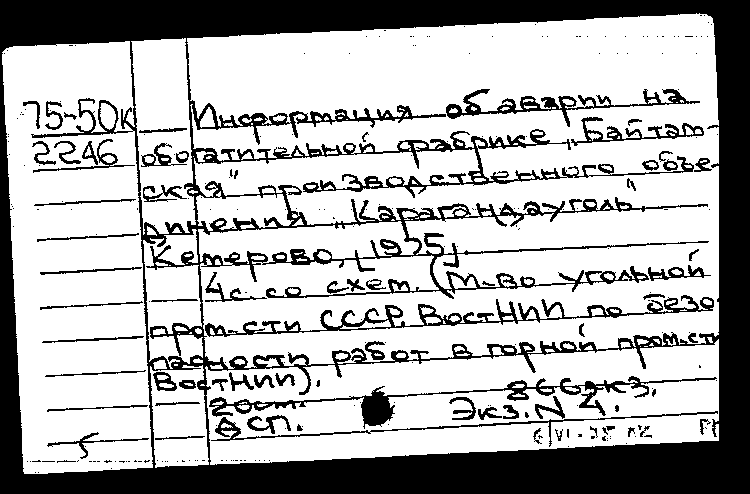 75-50к Информация об аварии на
2246 обогатительной фабрике „Байтам-
ская" производственного объе-
динения „Карагандауголь".
Кемерово, [1975].
4 с. со схем. (М-во угольной
пром-сти СССР. ВостНИИ по безо-
пасности работ в горной пром-сти
ВостНИИ).
866экз.
ДСП. Экз. N 4.
5